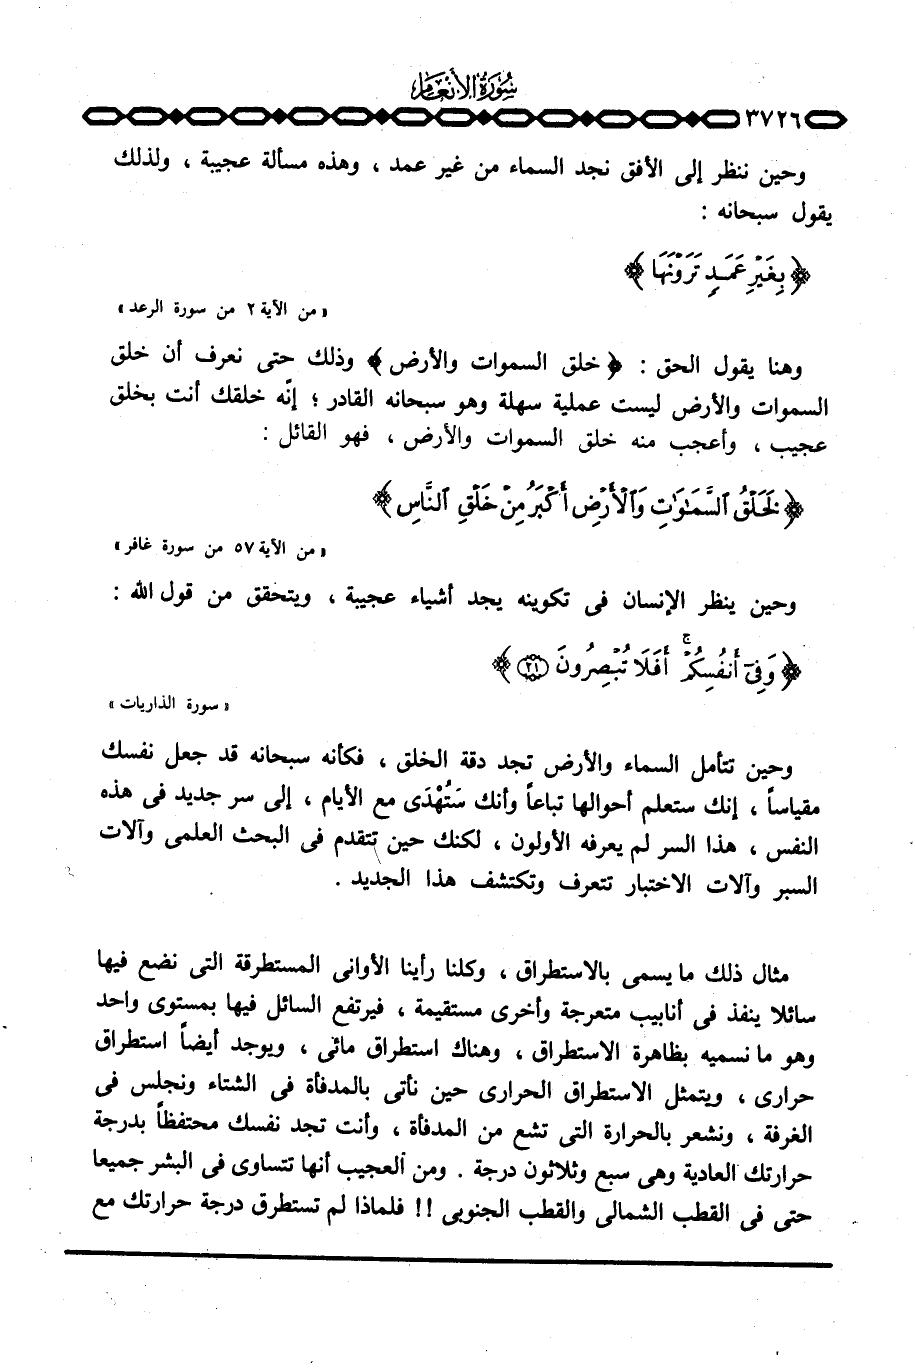 سورة الأنعام
٣٧٢٦
وحين ننظر إلى الأفق نجد السماء من غير عمد ، وهذه مسألة عجيبة ، ولذلك
يقول سبحانه :
﴿ بِغَيْرِ عَمَدٍ تَرَوْنَهَا ﴾
« من الآية ٢ من سورة الرعد »
وهنا يقول الحق : ﴿ خلق السموات والأرض ﴾ وذلك حتى نعرف أن خلق
السموات والأرض ليست عملية سهلة وهو سبحانه القادر ؛ إنّه خلقك أنت بخلق
عجيب ، وأعجب منه خلق السموات والأرض ، فهو القائل :
﴿ لَخَلْقُ ٱلسَّمَٰوَٰتِ وَٱلْأَرْضِ أَكْبَرُ مِنْ خَلْقِ ٱلنَّاسِ ﴾
« من الآية ٥٧ من سورة غافر »
وحين ينظر الإنسان فى تكوينه يجد أشياء عجيبة ، ويتحقق من قول الله :
﴿ وَفِىٓ أَنفُسِكُمْ ۚ أَفَلَا تُبْصِرُونَ ٢١ ﴾
« سورة الذاريات »
وحين تتأمل السماء والأرض تجد دقة الخلق ، فكأنه سبحانه قد جعل نفسك
مقياساً ، إنك ستعلم أحوالها تباعاً وأنك سَتُهْدَى مع الأيام ، إلى سر جديد فى هذه
النفس ، هذا السر لم يعرفه الأولون ، لكنك حين تتقدم فى البحث العلمى وآلات
السبر وآلات الاختبار تتعرف وتكتشف هذا الجديد .
مثال ذلك ما يسمى بالاستطراق ، وكلنا رأينا الأوانى المستطرقة التى نضع فيها
سائلا ينفذ فى أنابيب متعرجة وأخرى مستقيمة ، فيرتفع السائل فيها بمستوى واحد
وهو ما نسميه بظاهرة الاستطراق ، وهناك استطراق مائى ، ويوجد أيضاً استطراق
حرارى ، ويتمثل الاستطراق الحرارى حين نأتى بالمدفأة فى الشتاء ونجلس فى
الغرفة ، ونشعر بالحرارة التى تشع من المدفأة ، وأنت تجد نفسك محتفظاً بدرجة
حرارتك العادية وهى سبع وثلاثون درجة . ومن العجيب أنها تتساوى فى البشر جميعا
حتى فى القطب الشمالى والقطب الجنوبى !! فلماذا لم تستطرق درجة حرارتك مع